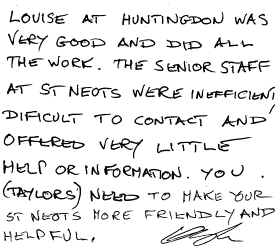 LOUISE AT HUNTINGDON WAS
VERY GOOD AND DID ALL
THE WORK. THE SENIOR STAFF
AT ST NEOTS WERE INEFFICIENT,
DIFICULT TO CONTACT AND
OFFERED VERY LITTLE
HELP OR INFORMATION. YOU.
(TAYLORS) NEED TO MAKE YOUR
ST NEOTS MORE FRIENDLY AND
HELPFUL.